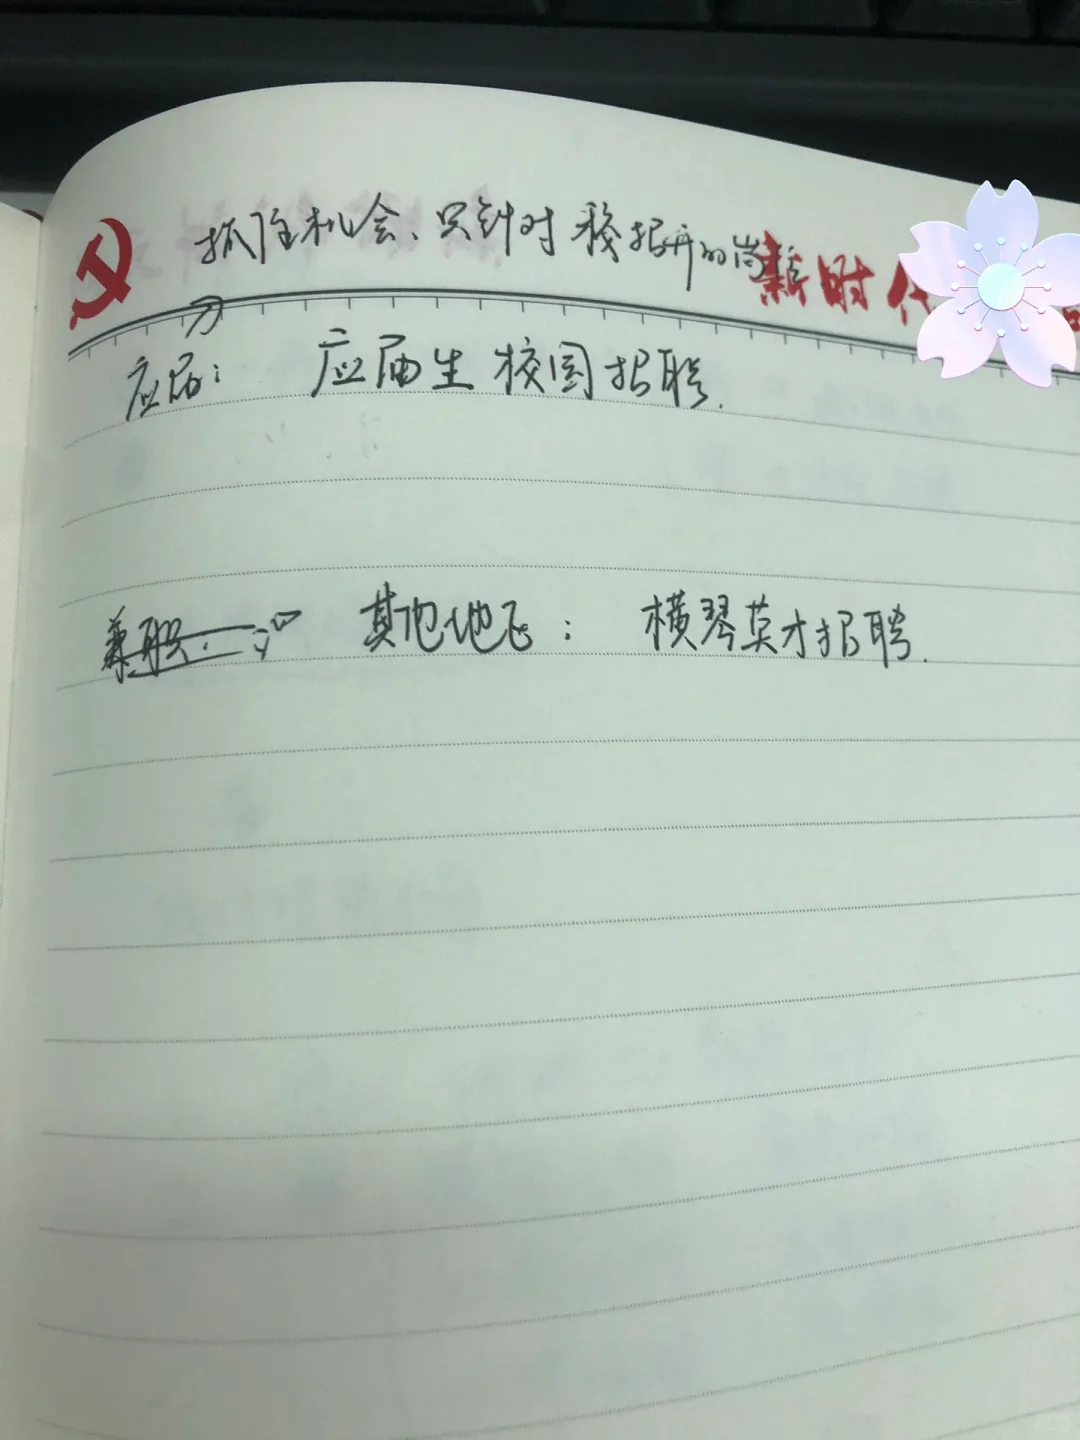 抓住机会、只针对 我招开的岗
新时代
应届： 应届生 校园招聘.
其他地区： 横琴英才招聘.